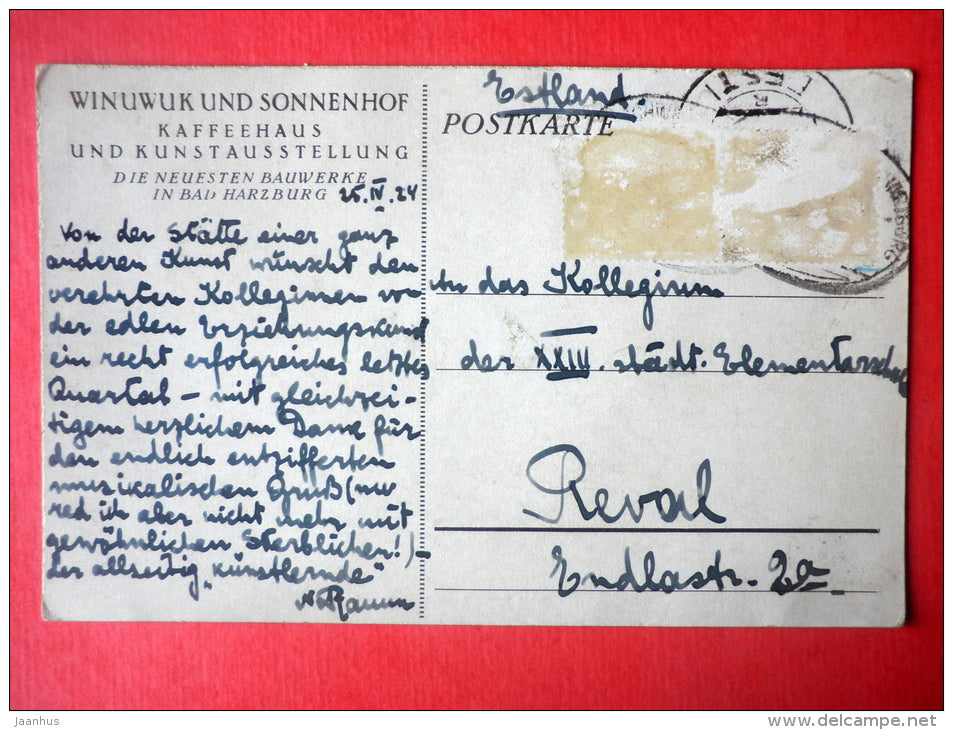 WINUWUK UND SONNENHOF
KAFFEEHAUS
UND KUNSTAUSSTELLUNG
DIE NEUESTEN BAUWERKE
IN BAD HARZBURG
25.IV.24
Von der Stätte einer ganz
anderen Kunst wünscht den
verehrten Kolleginnen von
der edlen Erziehungskunst
ein recht erfolgreiches letztes
Quartal – mit gleichzei-
tigem herzlichem Dank für
den endlich entzifferten
musikalischen Gruß (nu
red ich aber nicht mehr mit
gewöhnlichen Sterblichen!) –
der allseitig „künstlernde"
Estland.
POSTKARTE
EESTI
An das Kollegium
der XXIV. städt. Elementarschule
Reval
Endlastr. 2a
jaanhus
www.delcampe.net